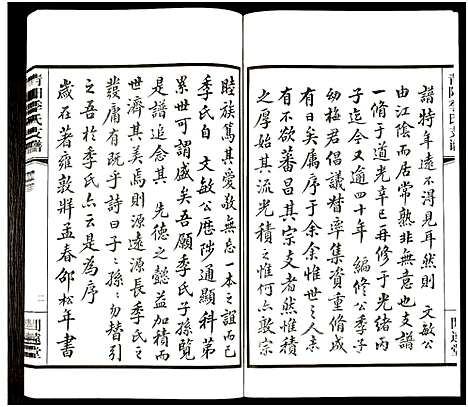 譜特年遠不得見耳然則 文敏公
由江陰而居常熟非無意也支譜
一修于道光辛巳再修于光緒丙
子迄今又逾四十年 編修公季子
幼極君倡議督寧集資重脩成
有日矣屬序于余余惟世之人亲
有不欲蕃昌其宗支者然惟積
之厚始其流光積之惟何亦惟
睦族篤其愛敬無忘一本之誼而已
季氏自 文敏公歷陟通顯科第
累世可謂盛矣吾願季氏子孫覽
是譜追念其 先德之懿益加積而
世濟其美焉則源遠源長季氏之
發庸有既乎詩曰子二孫二勿替引
之吾於季氏亦云是為序
歲在著雍敦牂孟春邵松年書
青陽季氏支譜
二